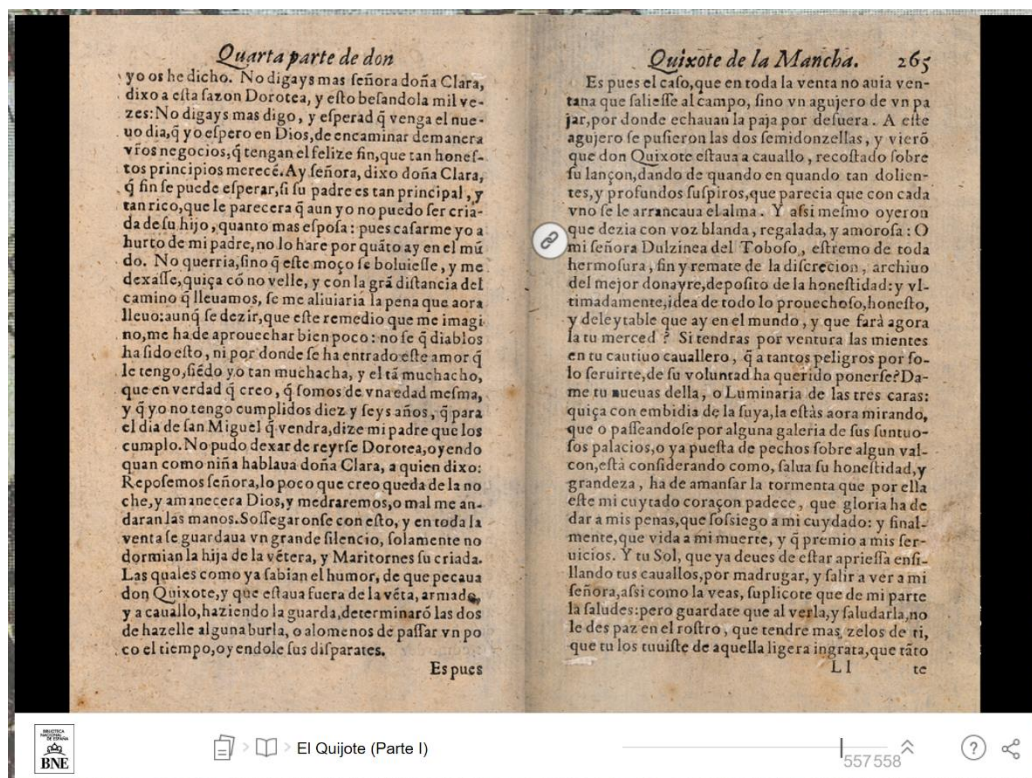 Quarta parte de don
yo os he dicho. No digays mas ſeñora doña Clara,
dixo a eſta ſazon Dorotea, y eſto beſandola mil ve-
zes: No digays mas digo, y eſperad q̃ venga el nue-
uo dia, q̃ yo eſpero en Dios, de encaminar demanera
vr̃os negocios, q̃ tengan el felize fin, que tan honeſ-
tos principios merecẽ. Ay ſeñora, dixo doña Clara,
q̃ fin ſe puede eſperar, ſi ſu padre es tan principal, y
tan rico, que le parecera q̃ aun yo no puedo ſer cria-
da de ſu hijo, quanto mas eſpoſa: pues caſarme yo a
hurto de mi padre, no lo hare por quãto ay en el mũ
do. No querria, ſino q̃ eſte moço ſe boluieſſe, y me
dexaſſe, quiça cõ no velle, y con la grã diſtancia del
camino q̃ lleuamos, ſe me aliuiaria la pena que aora
lleuo: aunq̃ ſe dezir, que eſte remedio que me imagi
no, me ha de aprouechar bien poco: no ſe q̃ diablos
ha ſido eſto, ni por donde ſe ha entrado eſte amor q̃
le tengo, ſiẽdo yo tan muchacha, y el tã muchacho,
que en verdad q̃ creo, q̃ ſomos de vna edad meſma,
y q̃ yo no tengo cumplidos diez y ſeys años, q̃ para
el dia de ſan Miguel q̃ vendra, dize mi padre que los
cumplo. No pudo dexar de reyrſe Dorotea, oyendo
quan como niña hablaua doña Clara, a quien dixo:
Repoſemos ſeñora, lo poco que creo queda de la no
che, y amanecera Dios, y medraremos, o mal me an-
daran las manos. Soſſegaronſe con eſto, y en toda la
venta ſe guardaua vn grande ſilencio, ſolamente no
dormian la hija de la vẽtera, y Maritornes ſu criada.
Las quales como ya ſabian el humor, de que pecaua
don Quixote, y que eſtaua fuera de la vẽta, armado,
y a cauallo, haziendo la guarda, determinarõ las dos
de hazelle alguna burla, o alomenos de paſſar vn po
co el tiempo, oyendole ſus diſparates.
Es pues
Quixote de la Mancha. 265
Es pues el caſo, que en toda la venta no auia ven-
tana que ſalieſſe al campo, ſino vn agujero de vn pa
jar, por donde echauan la paja por defuera. A eſte
agujero ſe puſieron las dos ſemidonzellas, y vierõ
que don Quixote eſtaua a cauallo, recoſtado ſobre
ſu lançon, dando de quando en quando tan dolien-
tes, y profundos ſuſpiros, que parecia que con cada
vno ſe le arrancaua el alma. Y aſsi meſmo oyeron
que dezia con voz blanda, regalada, y amoroſa: O
mi ſeñora Dulzinea del Toboſo, eſtremo de toda
hermoſura, fin y remate de la diſcrecion, archiuo
del mejor donayre, depoſito de la honeſtidad: y vl-
timadamente, idea de todo lo prouechoſo, honeſto,
y deleytable que ay en el mundo, y que farà agora
la tu merced? Si tendras por ventura las mientes
en tu cautiuo cauallero, q̃ a tantos peligros por ſo-
lo ſeruirte, de ſu voluntad ha querido ponerſe? Da-
me tu nueuas della, o Luminaria de las tres caras:
quiça con embidia de la ſuya, la eſtàs aora mirando,
que o paſſeandoſe por alguna galeria de ſus ſuntuo-
ſos palacios, o ya pueſta de pechos ſobre algun val-
con, eſtà conſiderando como, ſalua ſu honeſtidad, y
grandeza, ha de amanſar la tormenta que por ella
eſte mi cuytado coraçon padece, que gloria ha de
dar a mis penas, que ſoſsiego a mi cuydado: y final-
mente, que vida a mi muerte, y q̃ premio a mis ſer-
uicios. Y tu Sol, que ya deues de eſtar aprieſſa enſi-
llando tus cauallos, por madrugar, y ſalir a ver a mi
ſeñora, aſsi como la veas, ſuplicote que de mi parte
la ſaludes: pero guardate que al verla, y ſaludarla, no
le des paz en el roſtro, que tendre mas zelos de ti,
que tu los tuuiſte de aquella ligera ingrata, que tãto
Ll te
BIBLIOTECA NACIONAL DE ESPAÑA
BNE
El Quijote (Parte I)
557 558